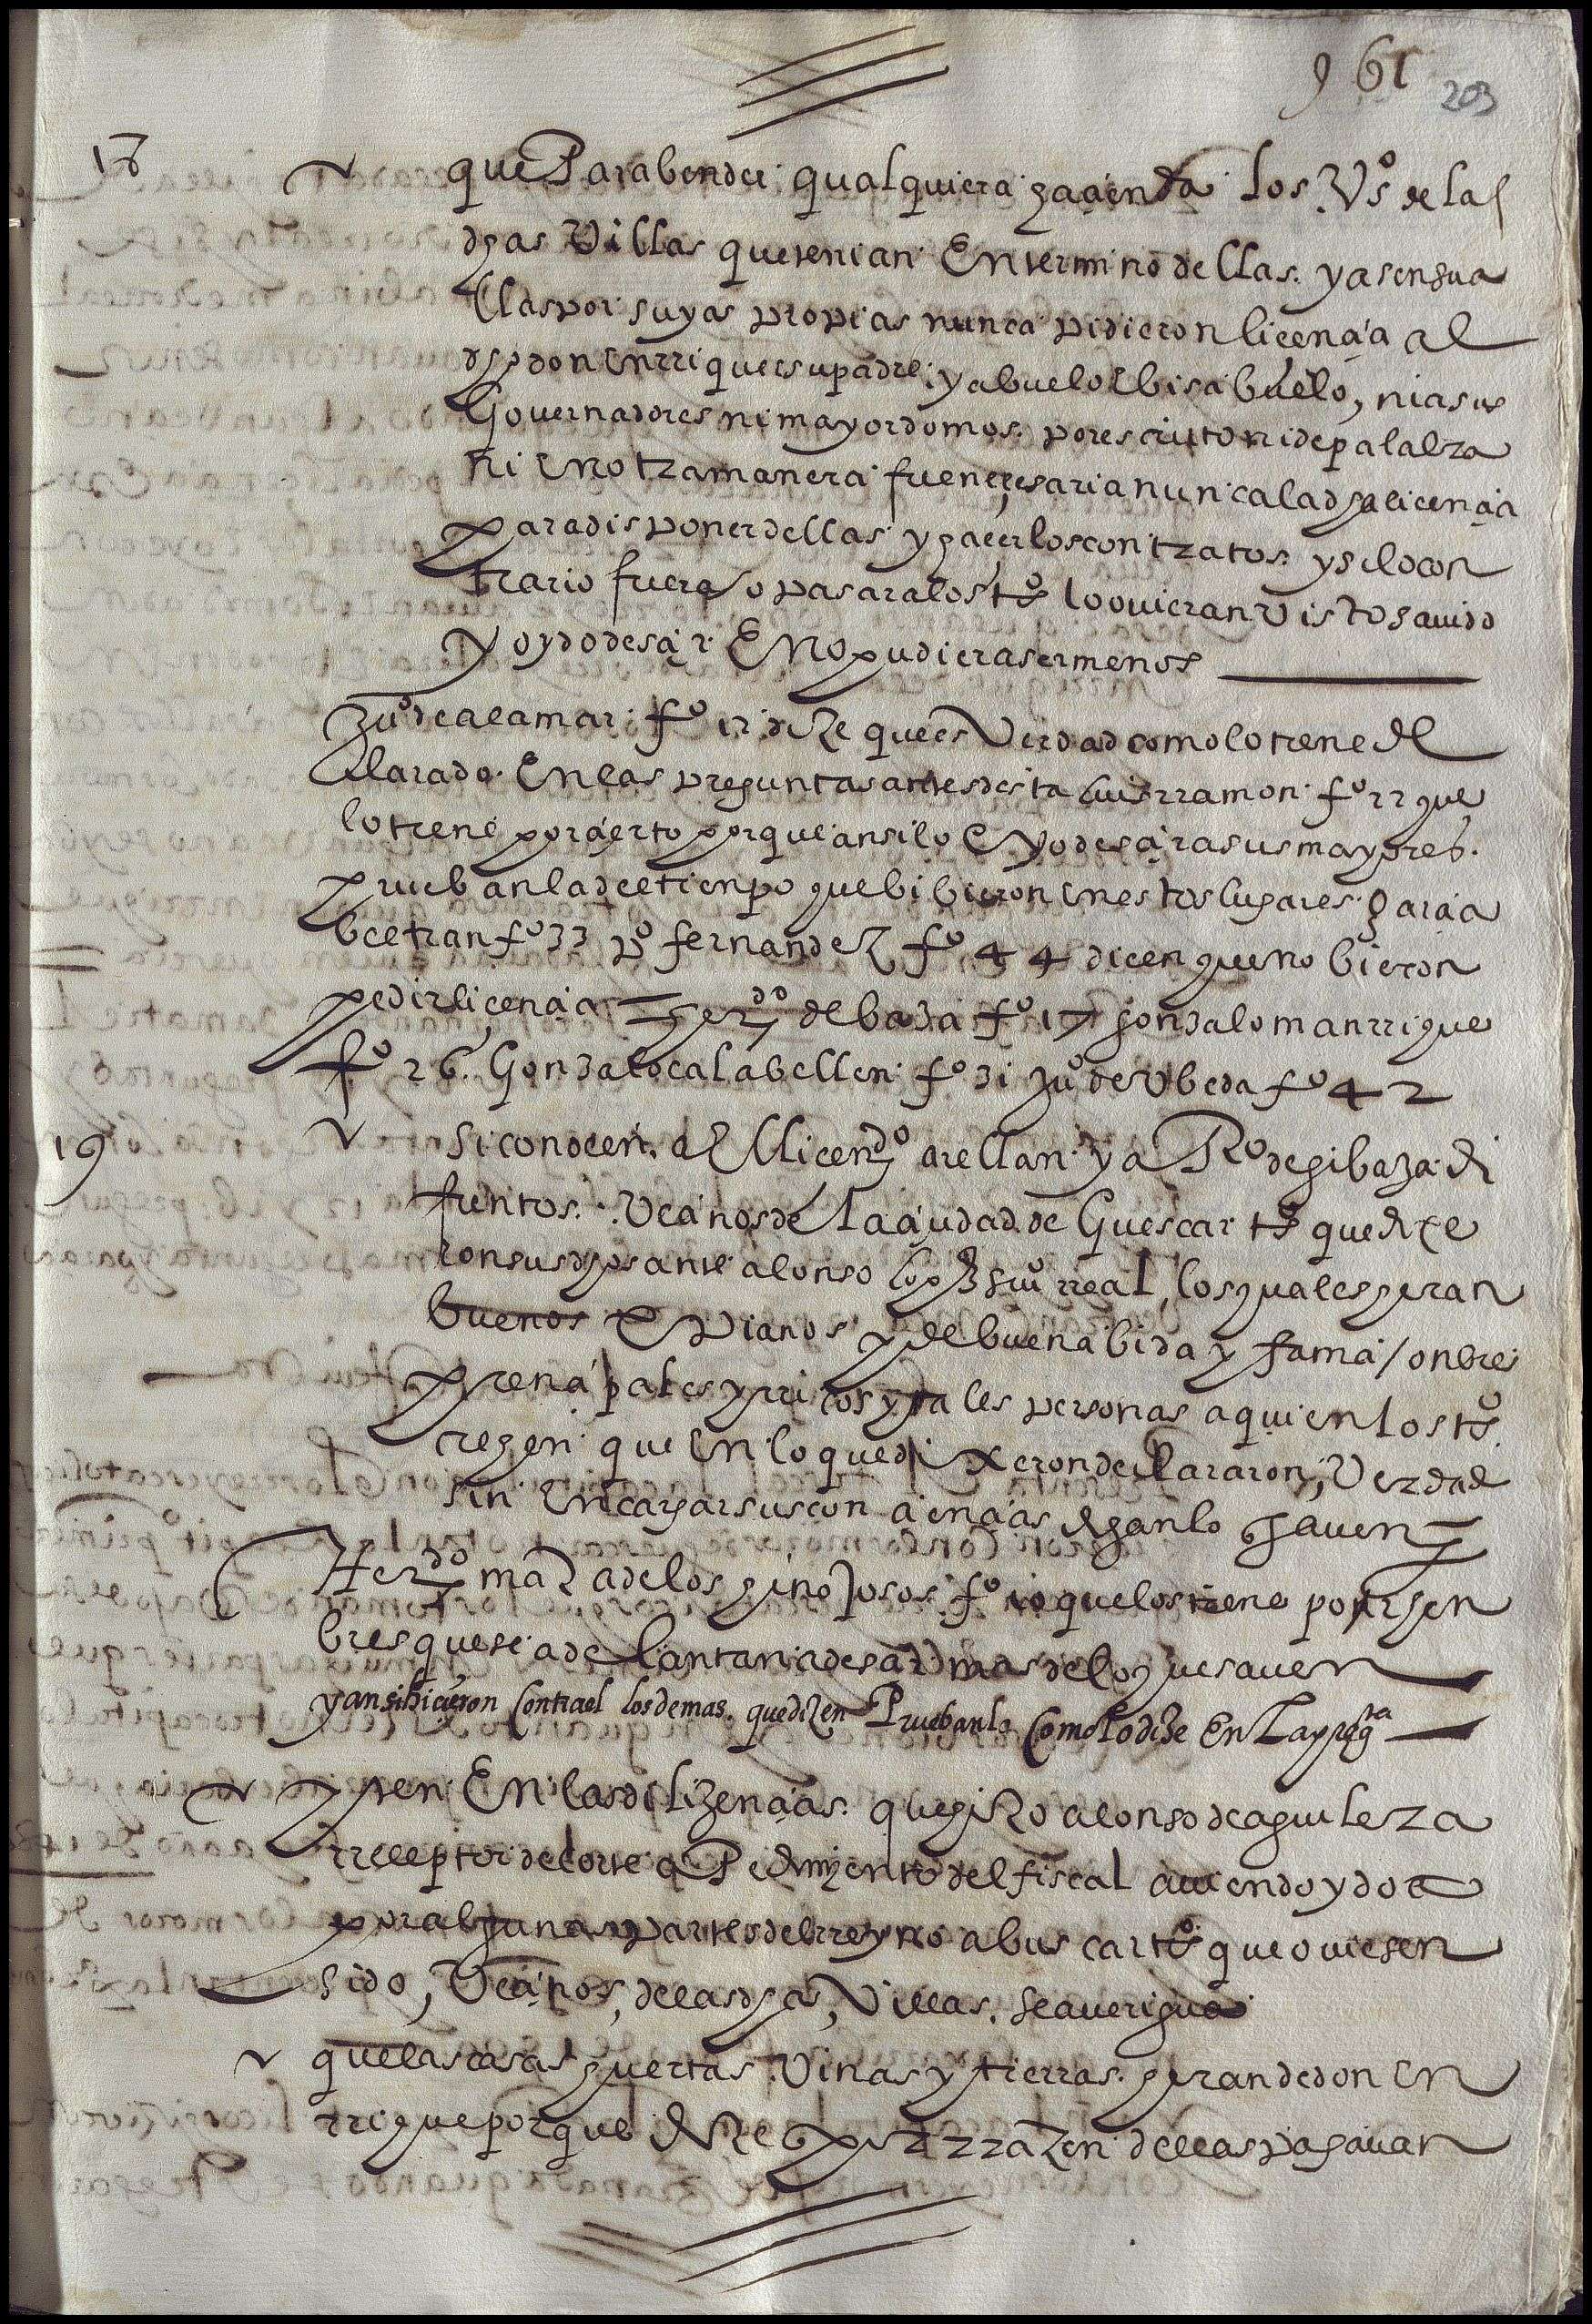 961
203
18 que Para bender qualquiera haçienda los Vºs de las
dhas Villas que tenian En termino dellas. y asensua
llas por suyas propias nunca pidieron licençia al
dho don enrrique e su padre, y abuelo e bisabuelo, ni a sus
Governadores ni mayordomos. por escrito ni de palabra
ni en otra manera fue neçesaria nunca la dha licençia
para disponer dellas y haçer los contratos. y si lo con
trario fuera o pasara los tºs lo ovieran visto savido
y oydo deçir E no pudiera ser menos
Juº de alamar fº 12 dize que es Verdad como lo tiene de
clarado En las preguntas antes desta luis rramon fº 22 que
lo tiene por çierto porque ansi lo oyo deçir a sus mayores.
prueban la de el tienpo que bibieron en estos lugares garçia
beltran fº 33 pº fernandez fº 44 dicen que no bieron
pedir liçençia = herdº de baza fº 17 gonzalo manrrique
fº 26. Gonzalo calabellen fº 31 Juº de Ubeda fº 42
19 si conocen. al licendº arellan y a Rº de gibaja di
funtos. Veçinos de la çiudad de Guescar tºs que dixe
ron sus dhos ante alonso lopez scriº rreal, los quales heran
buenos xpianos y de buena bida y fama / onbres
prençipales y rricos y tales personas a quien los tºs
creyen que en lo que dixeron declararon, Verdad
sin encargar sus conçiençias diganlo q saven =
Herdº maza de los hinojosos fº 10 que los tiene por hon
bres que se adelantarian a deçir mas de lo que saven
y ansi hicieron Contra el los demas. que dizen Prueban la Como lo dize En La pregta
yten En las dilizençias. que hizo alonso de aguilera
rreceptor de corte a Pedimyento del fiscal aviendo ydo a
por algunas partes del rreyno a buscar tºs que oviesen
sido, Veçinos, de las dhas, Villas. se averigua
que las casas huertas Vinas y tierras. heran de don en
rrique porque dize q por rrazen dellas pagavan